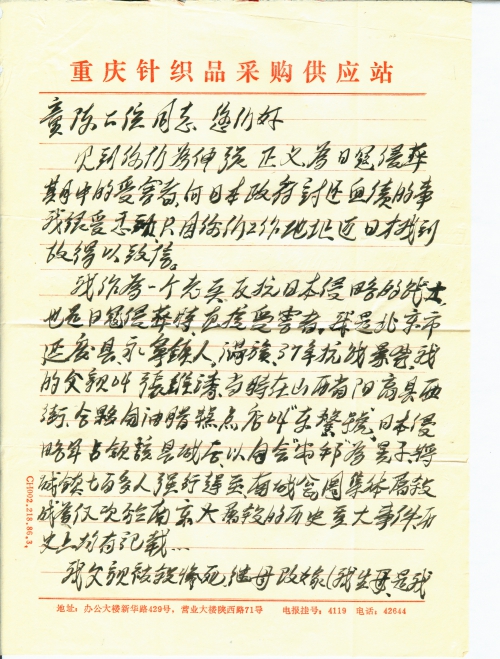 重庆针织品采购供应站
童陈二位同志 您们好
见到你们为伸张正义为日寇侵华
其中的受害者向日本政府讨还血债的事
我很受感动只因你们工作地址近日才找到
故得以致信。
我作为一个老兵反抗日本侵略的战士
也是日寇侵华特直接受害者。我是北京市
延庆县永宁镇人,满族,37年抗战暴发,我
的父亲叫张 当时在山西省阳高县西
街 糕点店叫 日本侵
略军占领该县城 以 为
城镇七百多人强行 至南城 集体屠杀
成 仅次于南京大屠杀的历史重大事件历
史上均有记载…
我父亲被 死,继母改嫁(我生母是我
CH002.218.86.3.
地址:办公大楼新华路429号,营业大楼陕西路71号 电报挂号:4119 电话:42644